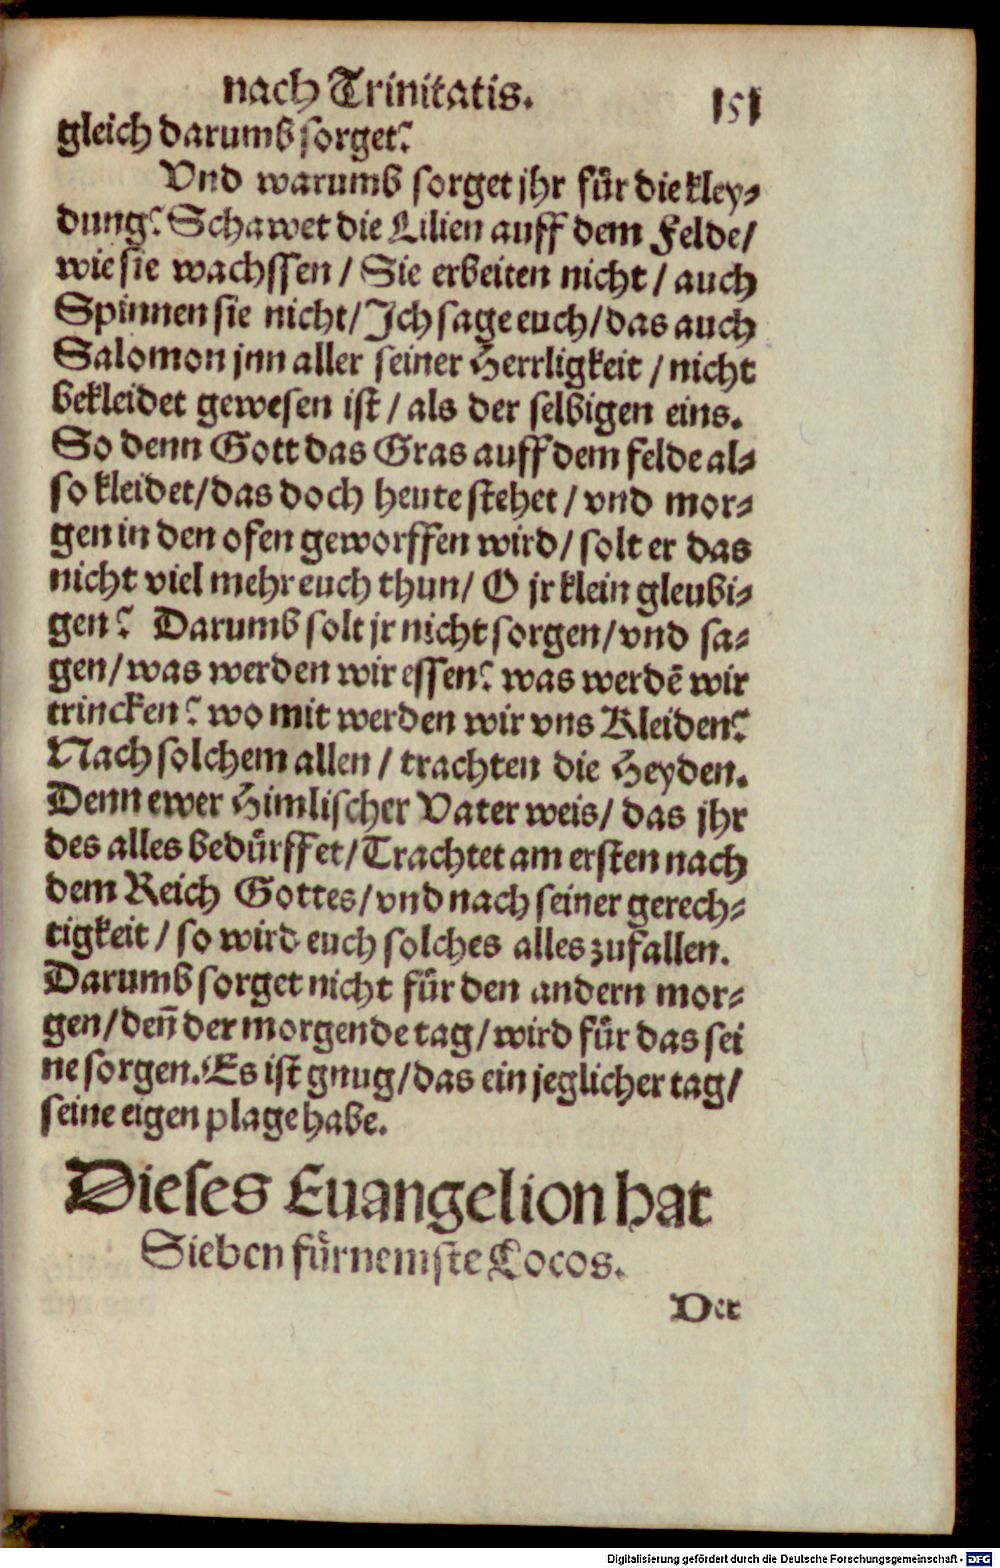 nach Trinitatis.
151
gleich darumb sorget?
Vnd warumb sorget jhr für die kley⸗
dung? Schawet die Lilien auff dem Felde/
wie sie wachssen / Sie erbeiten nicht / auch
Spinnen sie nicht/ Ich sage euch/ das auch
Salomon jnn aller seiner Herrligkeit / nicht
bekleidet gewesen ist / als der selbigen eins.
So denn Gott das Gras auff dem felde al⸗
so kleidet/ das doch heute stehet / vnd mor⸗
gen in den ofen geworffen wird/ solt er das
nicht viel mehr euch thun/ O jr klein gleubi⸗
gen? Darumb solt jr nicht sorgen/ vnd sa⸗
gen/ was werden wir essen? was werdē wir
trincken? wo mit werden wir vns Kleiden?
Nach solchem allen / trachten die Heyden.
Denn ewer Himlischer Vater weis/ das jhr
des alles bedürffet/ Trachtet am ersten nach
dem Reich Gottes/ vnd nach seiner gerech⸗
tigkeit / so wird euch solches alles zufallen.
Darumb sorget nicht für den andern mor⸗
gen/ deñ der morgende tag/ wird für das sei
ne sorgen. Es ist gnug/ das ein jeglicher tag/
seine eigen plage habe.
Dieses Euangelion hat
Sieben fürnemste Locos.
Der
Digitalisierung gefördert durch die Deutsche Forschungsgemeinschaft - DFG